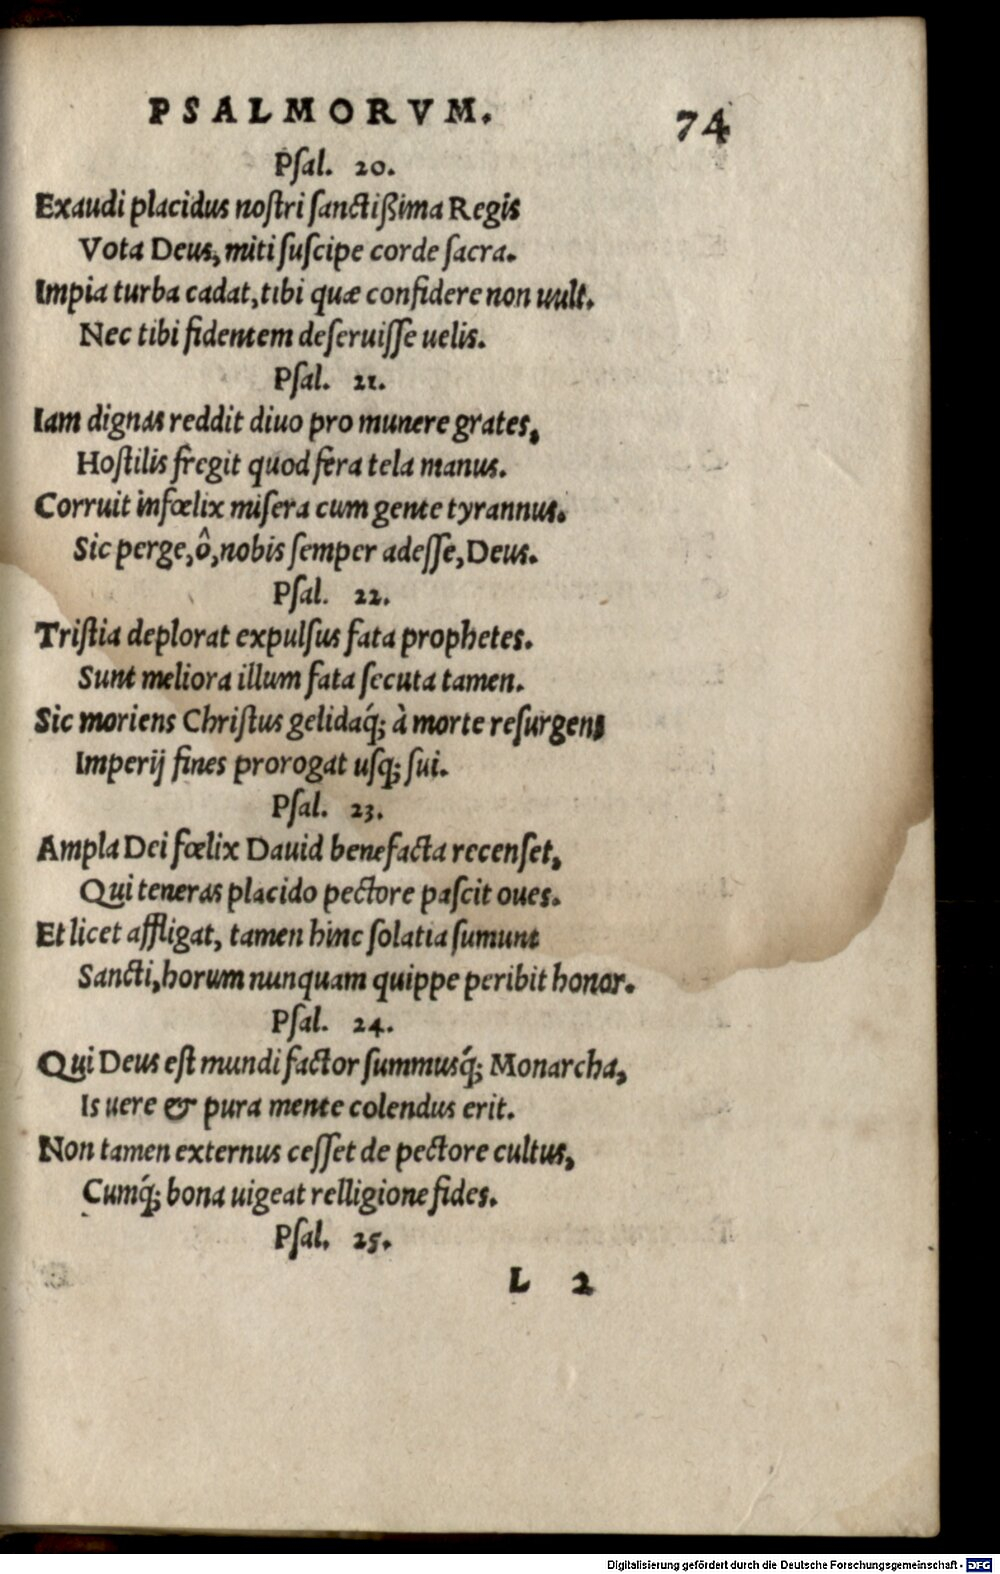 PSALMORVM. 74
Pſal. 20.
Exaudi placidus noſtri ſanctißima Regis
Vota Deus, miti ſuſcipe corde ſacra.
Impia turba cadat, tibi quæ confidere non uult.
Nec tibi fidentem deſeruiſſe uelis.
Pſal. 21.
Iam dignas reddit diuo pro munere grates,
Hoſtilis fregit quod fera tela manus.
Corruit infœlix miſera cum gente tyrannus.
Sic perge, ô, nobis ſemper adeſſe, Deus.
Pſal. 22.
Triſtia deplorat expulſus fata prophetes.
Sunt meliora illum fata ſecuta tamen.
Sic moriens Chriſtus gelidaq́; à morte reſurgens
Imperij fines prorogat uſq; ſui.
Pſal. 23.
Ampla Dei fœlix Dauid benefacta recenſet,
Qui teneras placido pectore paſcit oues.
Et licet affligat, tamen hinc ſolatia ſumunt
Sancti, horum nunquam quippe peribit honor.
Pſal. 24.
Qui Deus eſt mundi factor ſummusq́; Monarcha,
Is uere & pura mente colendus erit.
Non tamen externus ceſſet de pectore cultus,
Cumq́; bona uigeat relligione fides.
Pſal. 25.
L 2
Digitalisierung gefördert durch die Deutsche Forschungsgemeinschaft - DFG